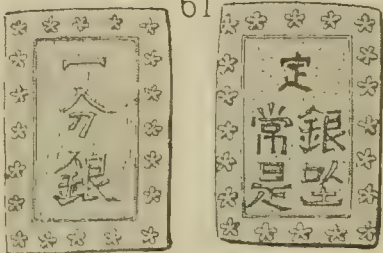 61
一分銀
定
銀座
常是